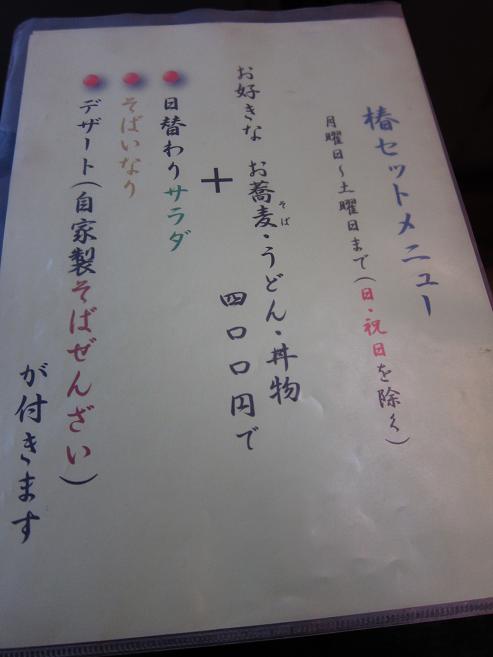 椿セットメニュー
月曜日～土曜日まで(日・祝日を除く)
お好きな お蕎麦・うどん・丼物
そば
+ 四〇〇円で
●日替わりサラダ
●そばいなり
●デザート(自家製そばぜんざい)
が付きます